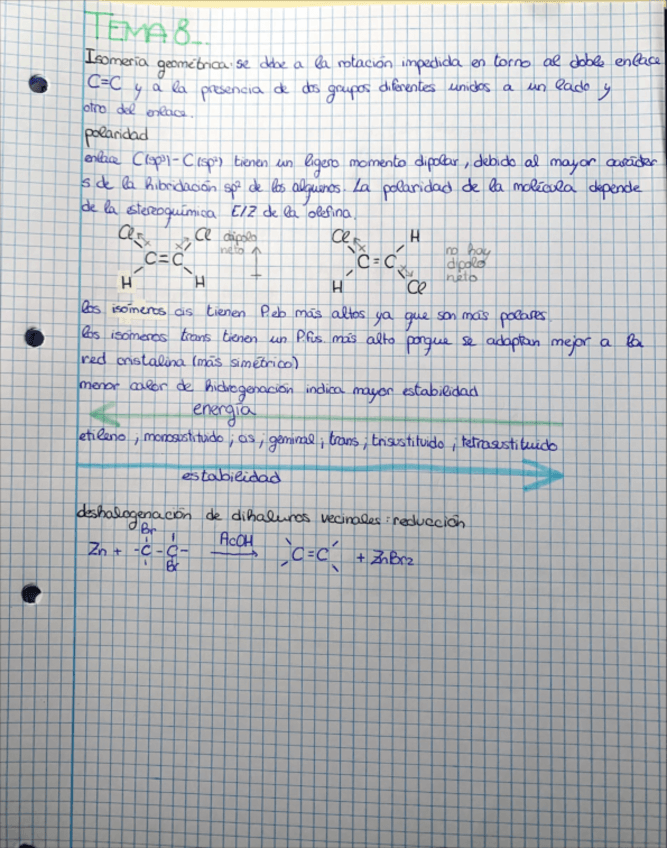 TEMA 8_
Isomería geométrica: se debe a la rotación impedida en torno al doble enlace
C=C y a la presencia de dos grupos diferentes unidos a un lado y
otro del enlace.
polaridad
enlace C(sp³)-C(sp²) tienen un ligero momento dipolar, debido al mayor carácter
s de la hibridación sp² de los alquenos. La polaridad de la molécula depende
de la estereoquímica E/Z de la olefina.
Cl Cl dipolo neto
C=C
H H
Cl H no hay dipolo neto
C=C
H Cl
los isómeros cis tienen P.eb más altos ya que son más polares.
los isómeros trans tienen un P.fus más alto porque se adaptan mejor a la
red cristalina (más simétrico)
menor calor de hidrogenación indica mayor estabilidad
energía
etileno, monosustituido; cis; geminal; trans; trisustituido; tetrasustituido
estabilidad
deshalogenación de dihaluros vecinales: reducción
Br
Zn + -C-C- AcOH C=C + ZnBr2
Br